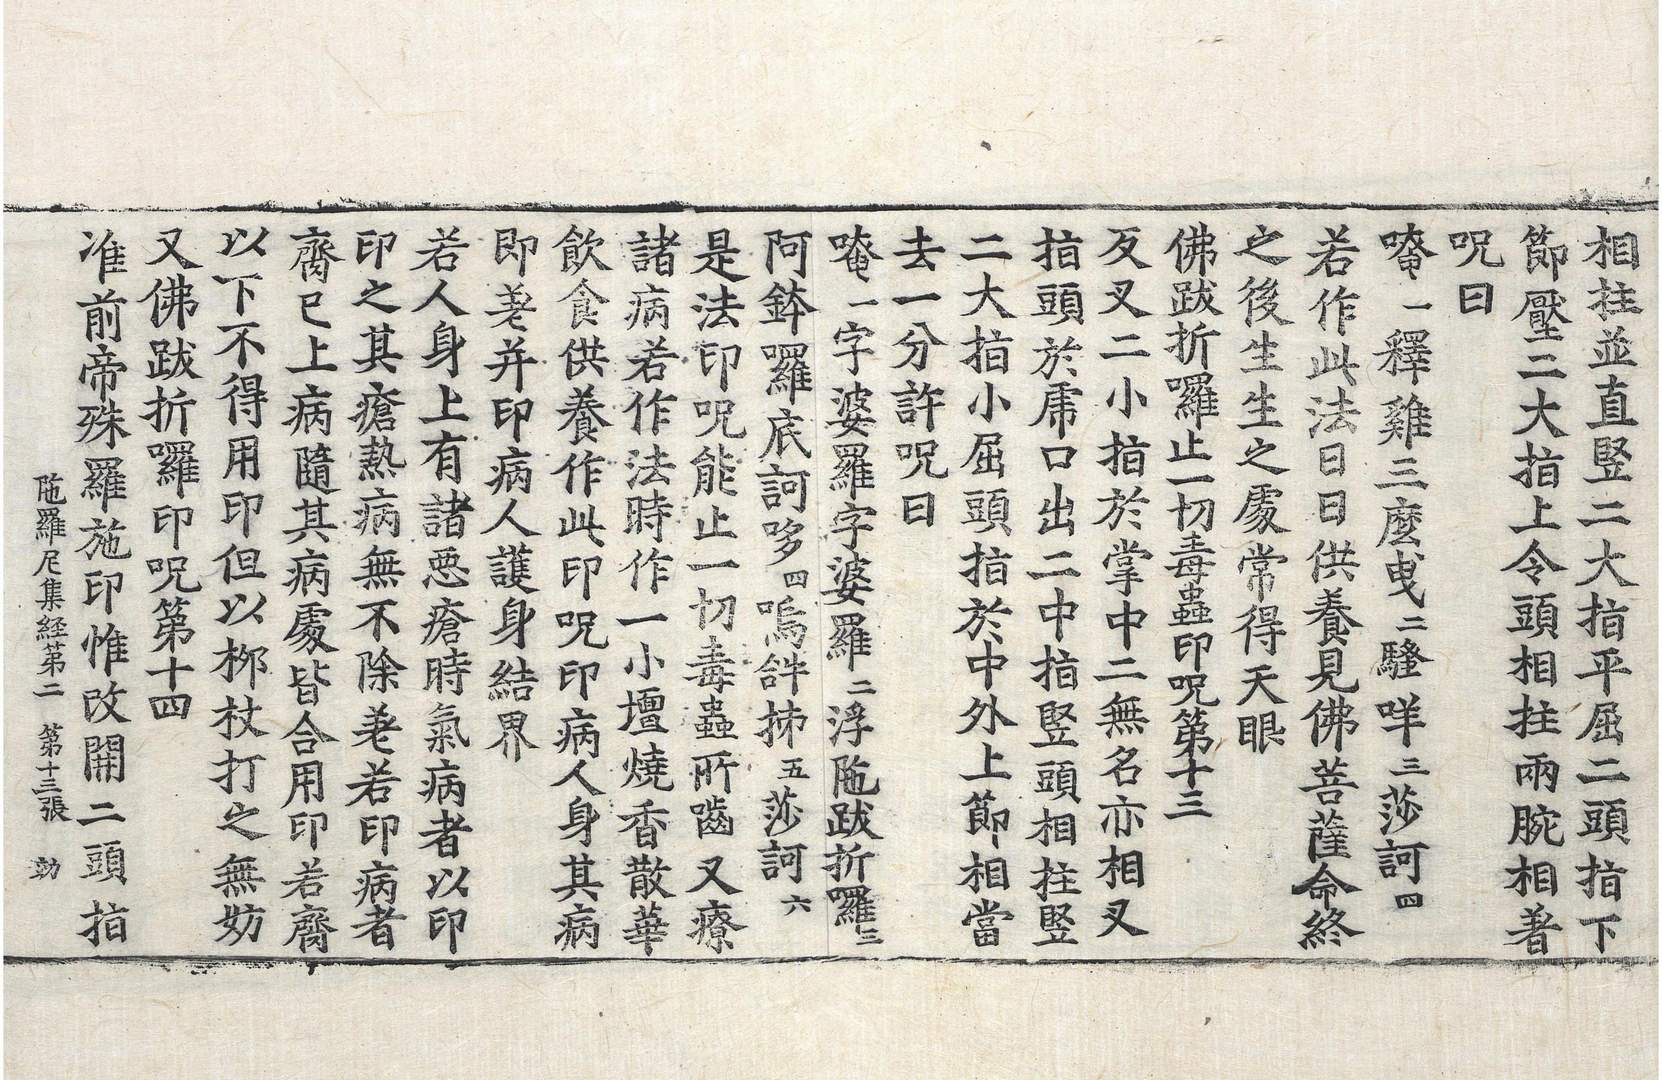 相拄並直竪二大指平屈二頭指下
節壓二大指上令頭相拄兩腕相著
呪曰
唵一釋雞三麽曵二騷咩三莎訶四
若作此法日日供養見佛菩薩命終
之後生生之處常得天眼
佛跋折囉止一切毒蟲印呪第十三
反叉二小指於掌中二無名亦相叉
指頭於虎口出二中指竪頭相拄竪
二大指小屈頭指於中外上節相當
去一分許呪曰
唵一字婆羅字婆羅二浮陁跋折囉三
阿鉢囉底訶哆四嗚𤙖抪五莎訶六
是法印呪能止一切毒蟲所嚙又療
諸病若作法時作一小壇燒香散華
飲食供養作此印呪印病人身其病
即差并印病人護身結界
若人身上有諸惡瘡時氣病者以印
印之其瘡熱病無不除差若印病者
齊已上病隨其病處皆合用印若齊
以下不得用印但以桞杖打之無妨
又佛跋折囉印呪第十四
准前帝殊羅施印惟改開二頭指
陁羅尼集経第二 第十三張